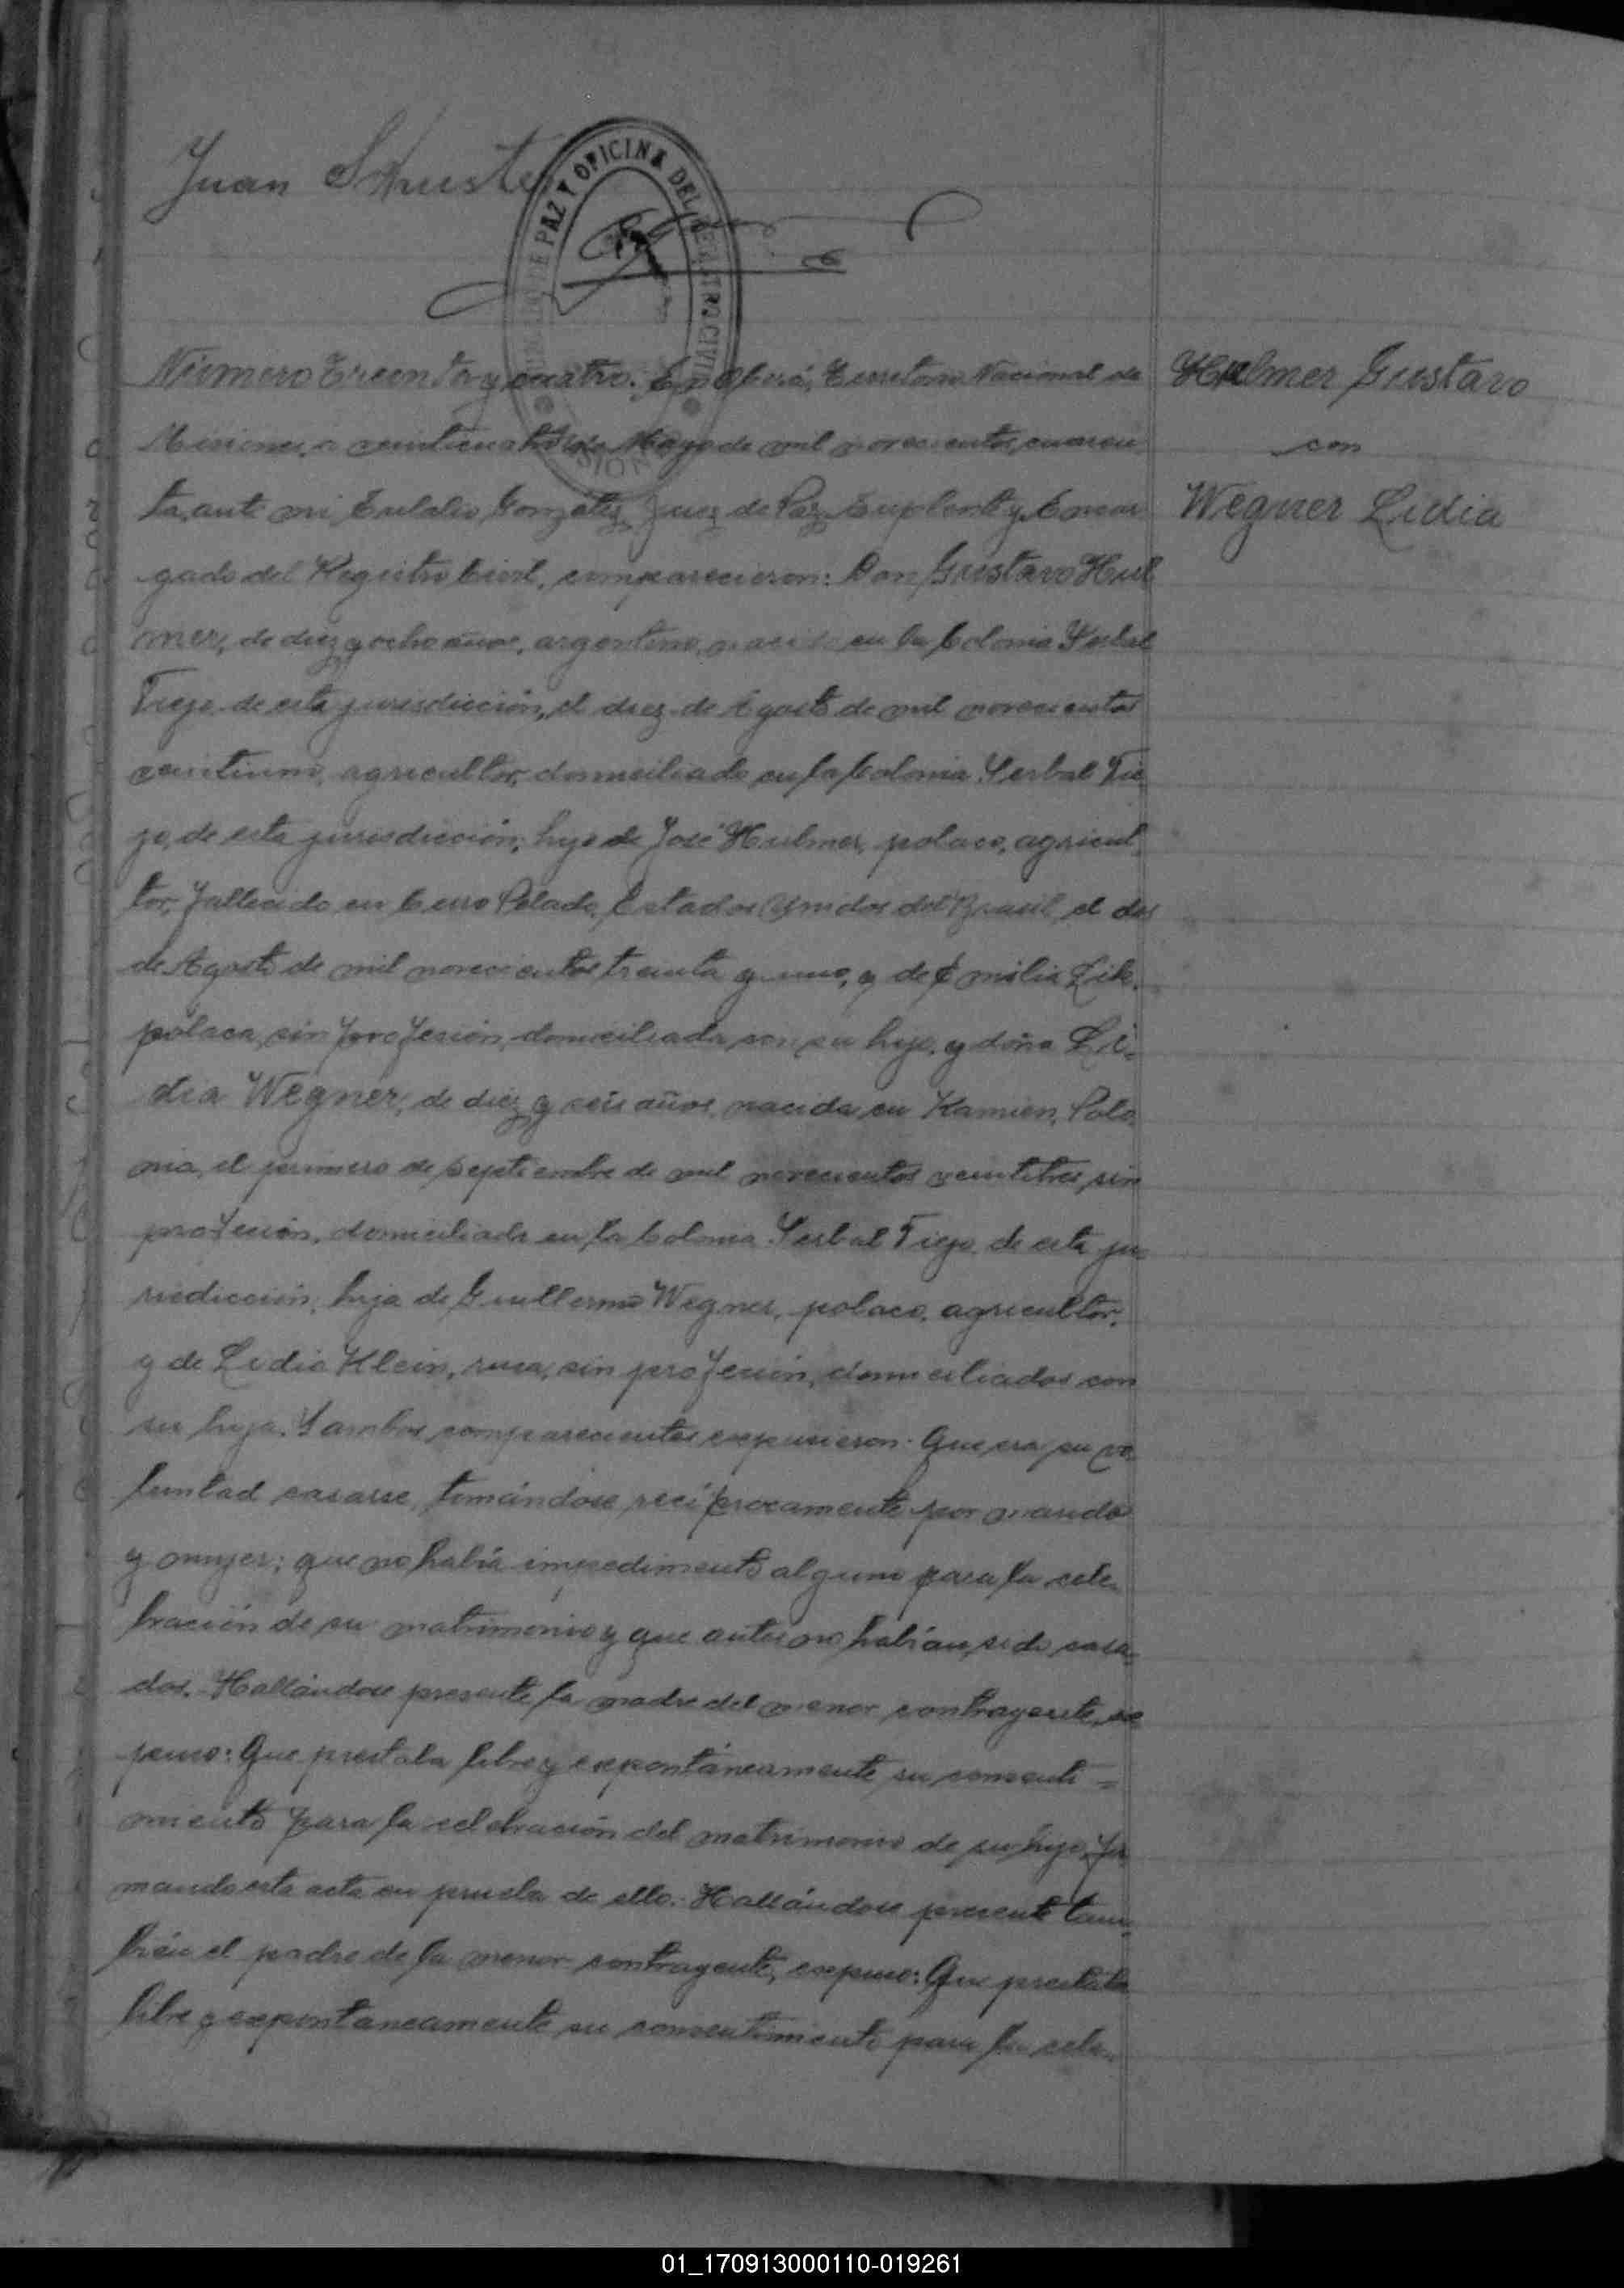 Juan Shuster
DE PAZ Y OFICINA DEL REGISTRO CIVIL
Número Treinta y cuatro. En Oberá, Territorio Nacional de
Misiones, a veinticuatro de Mayo de mil novecientos cuaren
ta, ante mi Eulalio González, Juez de Paz Suplente y Encar
gado del Registro Civil, comparecieron: Don Gustavo Hul
mer, de diez y ocho años, argentino, nacido en la Colonia Yerbal
Viejo de esta jurisdicción, el diez de Agosto de mil novecientos
veintiuno, agricultor, domiciliado en la Colonia Yerbal Vie
jo, de esta jurisdicción; hijo de José Hulmer, polaco, agricul
tor, fallecido en Cerro Pelado, Estados Unidos del Brasil, el dos
de Agosto de mil novecientos treinta y uno, y de Emilia Lik,
polaca, sin profesión, domiciliada con su hijo, y doña Li=
dia Wegner, de diez y seis años, nacida en Kamien, Polo
nia, el primero de Septiembre de mil novecientos veintitres, sin
profesión, domiciliada en la Colonia Yerbal Viejo de esta ju
risdicción, hija de Guillermo Wegner, polaco, agricultor,
y de Lidia Klein, rusa, sin profesión, domiciliados con
su hija. Y ambos comparecientes expusieron: Que era su vo
luntad casarse, tomándose recíprocamente por marido
y mujer; que no había impedimento alguno para la cele
bración de su matrimonio y que antes no habían sido casa
dos. Hallándose presente la madre del menor contrayente, ex
puso: Que prestaba libre y expontáneamente su consenti=
miento para la celebración del matrimonio de su hijo, fir
mando esta acta en prueba de ello. Hallándose presente tam
bién el padre de la menor contrayente, expuso: Que prestaba
libre y expontaneamente su consentimiento para la cele
Hulmer Gustavo
con
Wegner Lidia
01_170913000110-019261